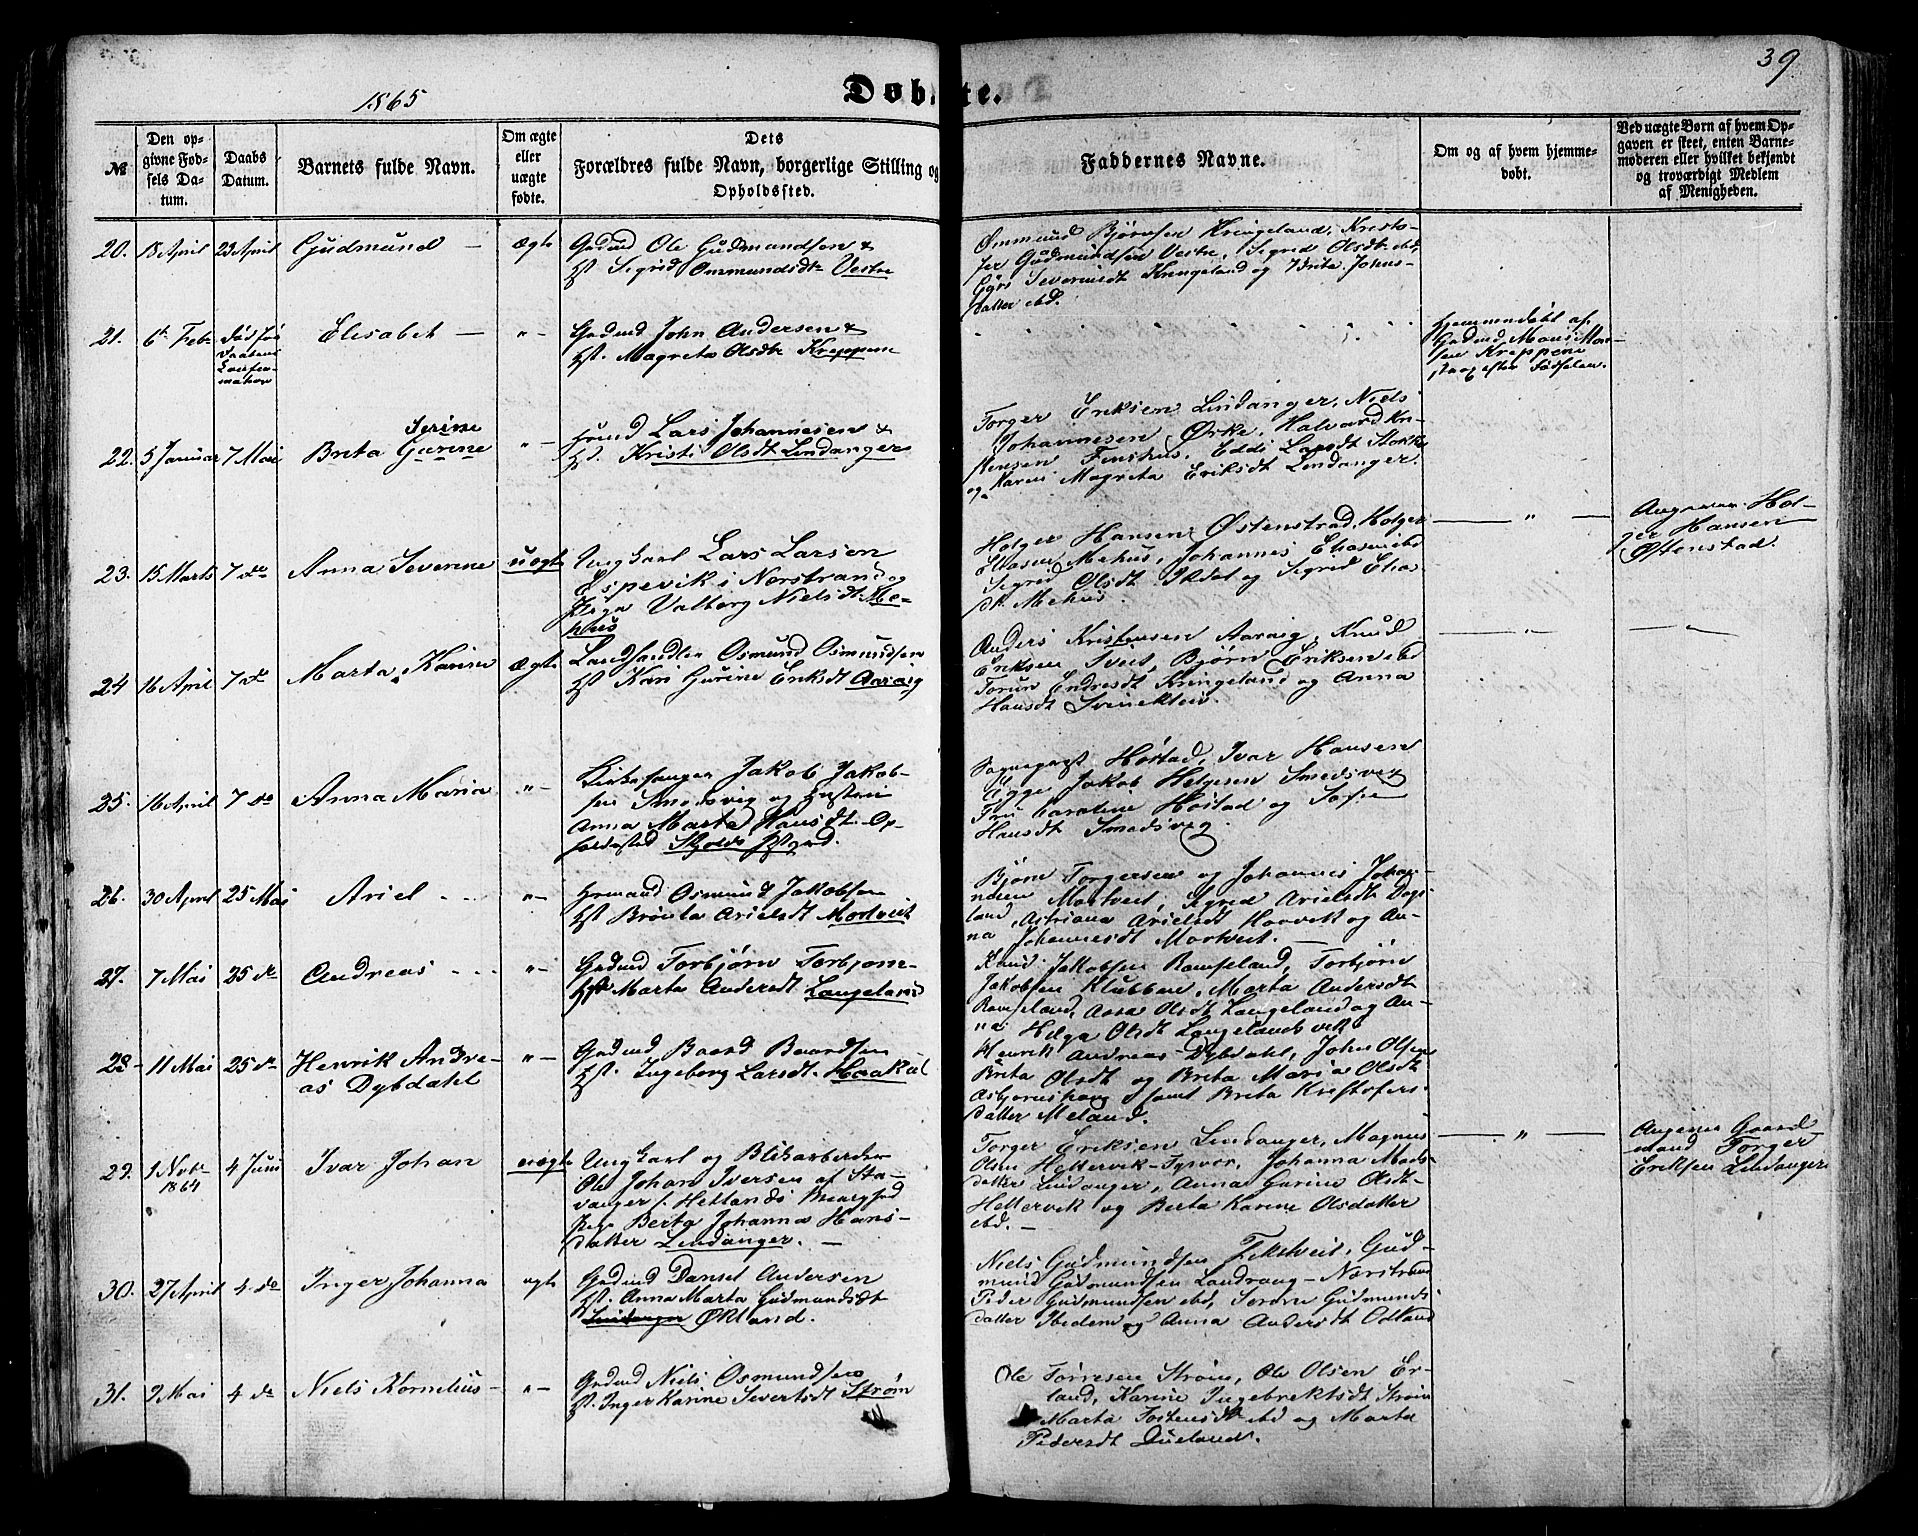 39
1865
Døbte.
№
Den op-
givne Fød-
sels Da-
tum.
Daabs
Datum.
Barnets fulde Navn.
Om ægte
eller
uægte
fødte.
Dets
Forældres fulde Navn, borgerlige Stilling og
Opholdssted.
Faddernes Navne.
Om og af hvem hjemme-
døbt.
Ved uægte Børn af hvem Op-
gaven er skeet, enten Barne-
moderen eller hvilket bekjendt
og troværdigt Medlem
af Menigheden.
20. 18 April 23 April Gudmund — ægte
Gdmd Ole Gudmundsen &
Hst. Sigrid Ommundsdtr Vestre
Ommund Bjørnsen Kringeland, Kristo-
fer Gudmundsen Vestre, Sigrid Olsdtr ebd,
Severinsdt Kringeland og Brita Johns-
datter ebd.
21. 6te Febr Død før
Daabens
Confir-
mation
Elisabet — "-
Gdmd John Andersen &
Hst. Magreta Olsdtr Kreppene
Hjemmendøbt af
Gdmd Mons Mon-
sen Kreppene
strax efter Fødselen.
22. 5 Januar 7 Mai Brita Gurine "-
Serine
Lars Johannesen &
Hst. Kristi Olsdt Lindanger
Torger Eriksen Lindanger, Niels
Johannesen Ørke, Halvard Kri-
stensen Finshus, Eddi Larsdt Stokke
og Karen Magreta Eriksdt Lindanger.
23. 15 Marts 7 de Anna Severine uægte
Ungkarl Lars Larsen
Espevik i Nærstrand og
Piga Valborg Nielsdt Me-
hus
Holger Hansen Østenstad, Holger
Eliasen Mehus, Johannes Eliasen ebd
Sigrid Olsdt Ilsdal og Sigrid Elia
dt. Mehus.
— " —
Angiver Hol-
ger Hansen
Østenstad.
24 16 April 7 de Marta Karine ægte
Landhandler Osmund Osmundsen
Hst Kari Gurine Eriksdt Aarvig
Anders Kristensen Aarvig, Knud
Eriksen Tveit, Bjørn Eriksen ebd
Torun Endresdt Kringeland og Anna
Hansdt
— " —
— " —
25. 16 April 7 de Anna Maria "-
Kirkesanger Jakob Jakob-
sen Smedsvig og Hustru
Anna Marta Hansdt. Op-
holdssted Skjolds Pstgrd.
Sognepræst Høstad, Ivar Hansen
Ægge Jakob Helgesen Smedsvig
Fru Caroline Høstad og Sofie
Hansdt Smedsvig.
26. 30 April 25 Mai Ariel "-
Osmund Jakobsen
Hst Brønla Arielsdt Mortveit
Bjørn Torgersen og Johannes Johan-
nesen Mortveit, Sigrid Arielsdt Dags-
land, Astriana Arielsdt Horvik og An-
na Johannesdt Mortveit.—
27. 7 Mai 25 de Andreas "-
Gdmd Torbjørn Torbjørn-
Marta Andersdt Langeland
Knud Jakobsen Ramseland, Torbjørn
Jakobsen Klubben, Marta Andersdt
Ramseland, Aasa Olsdt Langeland og An-
na Helga Olsdt Langelandsvik
28- 11 Mai 25 de Henrik Andre-
as Dybdahl
"-
Gdmd Baard Baardsen
Hst. Ingeborg Larsdt. Haakul
Henrik Andreas Dybdahl, John Olsen
Brita Olsdt og Brita Maria Olsdt
Asbjørnshaug samt Brita Kristofers-
datter Meland.
29. 1 Nobr
1864
4 Juni Ivar Johan uægte
Ungkarl og Blikarbeider
Ole Johan Iversen af Sta-
vanger f. Hetlands Menighed
Pige Berta Johanna Hans-
datter Lindanger. —
Torger Eriksen Lindanger, Magnus
Olsen Hettervik-Tysvær, Johanna Mads-
datter Lindanger, Anna Gurine Olsdt-
Hettervik og Berta Karine Olsdatter
ebd.—
— " —
Angiver Gaard
mand Torger
Eriksen Lindanger
30. 27 April 4 de Inger Johanna ægte
Gdmd Daniel Andersen
Hst. Anna Marta Gudmundsdt
Lindanger Økland.
Niels Gudmundsen Tikstveit, Gud-
mund Gudmundsen Landraag-Nærstrand
Peder Gudmundsen ebd, Serine Gudmunds
datter Ibidem og Anna Andersdt Odland
31. 2 Mai 4 de Niels Kornelius- "-
Gdmd Niels Osmundsen
Hst. Inger Karine Sivertsdt Strøm
Ole Tørresen Strøm, Ole Olsen Er-
land, Karine Ingebrektsdt Strøm
Marta Tostensdt ebd og Marta
Pedersdt Dueland.